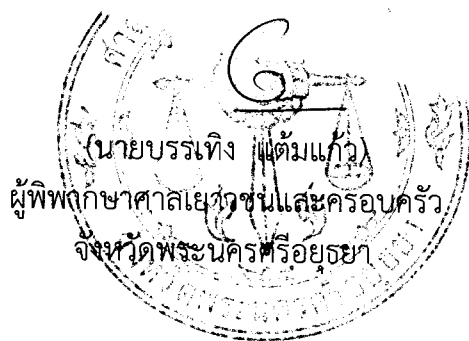 (นายบรรเทิง แต้มแก้ว)
ผู้พิพากษาศาลเยาวชนและครอบครัว
จังหวัดพระนครศรีอยุธยา